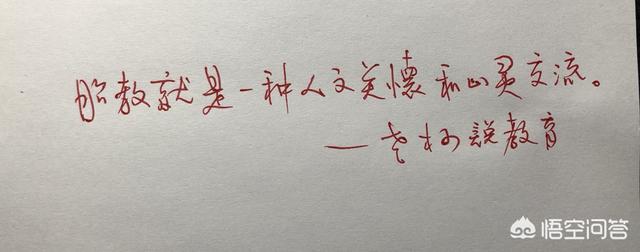 胎教就是一种人文关懷和心灵交流。
——老杨説教育
悟空问答